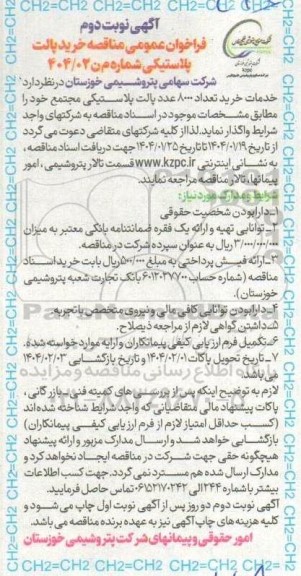 آگهی نوبت دوم
فراخوان عمومی مناقصه خرید پالت
پلاستیکی شماره م ن ۴۰۴/۰۲
شرکت سهامی پتروشیمی خوزستان در نظر دارد
خدمات خرید تعداد ۸۰۰۰ عدد پالت پلاستیکی مجتمع خود را
مطابق مشخصات موجود در اسناد مناقصه به شرکتهای واجد
شرایط واگذار نماید. لذا از کلیه شرکتهای متقاضی دعوت می گردد
از تاریخ ۱۴۰۴/۰۱/۱۹ تا تاریخ ۱۴۰۴/۰۱/۲۵ جهت دریافت اسناد مناقصه،
به نشانی اینترنتی www.kzpc.ir قسمت تالار پتروشیمی، امور
پیمانها، تالار مناقصه مراجعه نمایند.
شرایط و مدارک مورد نیاز:
۱- دارا بودن شخصیت حقوقی
۲- توانایی تهیه و ارائه یک فقره ضمانتنامه بانکی معتبر به میزان
ریال به عنوان سپرده شرکت در مناقصه.
۳- ارائه فیش پرداختی به مبلغ ریال بابت خرید اسناد
مناقصه (شماره حساب بانک تجارت شعبه پتروشیمی
خوزستان).
۴- دارا بودن توانایی کافی مالی و نیروی متخصص با تجربه
۵- داشتن گواهی لازم از مراجعه ذیصلاح.
۶- تکمیل فرم ارزیابی کیفی پیمانکاران و ارایه موارد خواسته شده.
۷- تاریخ تحویل پاکات ۱۴۰۴/۰۲/۰۱ و تاریخ بازگشایی ۱۴۰۴/۰۲/۰۳
می باشد.
لازم به توضیح اینکه پس از بررسی های کمیته فنی و بازرگانی،
پاکات پیشنهاد مالی متقاضیانی که واجد شرایط شناخته شده اند
(کسب حداقل امتیاز لازم از فرم ارزیابی کیفی پیمانکاران)
بازگشایی خواهد شد و ارسال مدارک مزبور و ارائه پیشنهاد
هیچگونه حقی جهت شرکت در مناقصه ایجاد نخواهد کرد و
مدارک ارسال شده هم مسترد نمی گردد. جهت کسب اطلاعات
بیشتر با شماره تماس حاصل فرمایید.
آگهی نوبت دوم دو روز پس از آگهی نوبت اول چاپ می شود و
کلیه هزینه های چاپ آگهی نیز به عهده برنده مناقصه می باشد.
امور حقوقی و پیمانهای شرکت پتروشیمی خوزستان